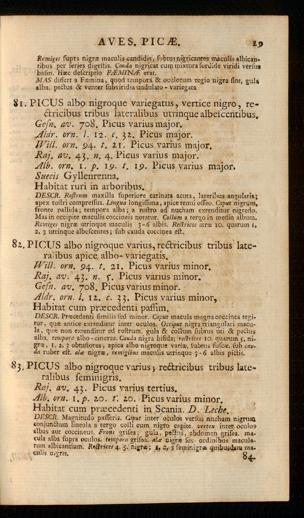 AVES. PICÆ. 19
Remiges supra nigræ maculis candidis, subtus nigricantes maculis albican-
tibus per series digestis. Cauda nigricat cum mixtura sordide viridi versus
basin. Hæc descriptio FÆMINÆ erat.
MAS differt a Fæmina, quod tempora & oculorum regio nigra sint, gula
alba. pectus & venter subviridia undulato-variegata
81. PICUS albo nigroque variegatus, vertice nigro, re-
ctricibus tribus lateralibus utrinque albescentibus.
Gesn. av. 708, Picus varius major.
Aldr. orn. l. 12. c. 32. Picus major.
Will. orn. 94. t. 21. Picus varius major.
Raj. av. 43. n. 4. Picus varius major.
Alb. orn. 1. p. 19. t. 19. Picus varius major.
Suecis Gyllenrenna.
Habitat ruri in arboribus.
DESCR. Rostrum maxilla superiore carinata acuta, lateribus angularis;
apex rostri compressus. Lingua longissima, apice tenui osseo. Caput nigrum,
fronte pallida; tempora alba; a rostro ad nucham extenditur nigredo.
Mas in occipite maculis coccineis notatur. Collum a tergo in medio album.
Remiges nigræ utrinque maculis 5-6 albis. Rectrices utr. 10. quarum 1,
2, 3 utrinque albescentes; sub cauda coccinea est.
82. PICUS albo nigroque varius, rectricibus tribus late-
ralibus apice albo-variegatis.
Will. orn. 94. t. 21. Picus varius minor.
Raj. av. 43. n. 5. Picus varius minor.
Gesn. av. 708, Picus varius minor.
Aldr. orn. l. 12. c. 33. Picus varius minor,
Habitat cum præcedenti passim,
DESCR. Præcedenti similis sed minor. Caput macula magna coccinea tegi-
tur, quæ antice extenditur inter oculos. Occiput nigra triangulari macu-
la, quæ non extenditur ad rostrum. gula & collum subtus uti & pectus
alba. tempora albo-cinerea. Cauda nigra bifida; rectrices 10. quarum 5, ni-
gra, 1, 2, 3 obtusiores, apice albo nigroque variæ, subtus fuscæ. sub cau-
da ruber est. alæ nigræ, remigibus maculis utrinque 5-6 albis pictis.
83. PICUS albo nigroque varius; rectricibus tribus late-
ralibus seminigris.
Raj. av. 43. Picus varius tertius.
Alb. orn. 1. p. 20. t. 20. Picus varius minor.
Habitat cum præcedenti in Scania. D. Leche.
DESCR. Magnitudo passeris. Caput inter oculos versus nucham nigrum
conjunctum lineola a tergo colli cum nigro capite. vertex inter oculos
albus aut coccineus. Frons grisea; gula, pectus, abdomen grisea. ma-
cula alba supra oculos. tempora grisea. alæ nigræ sex ordinibus macula-
rum albicantium. Rectrices 4. 5. nigræ; 1, 2, 3 seminigræ quibusdam ma-
culis nigris.
84.